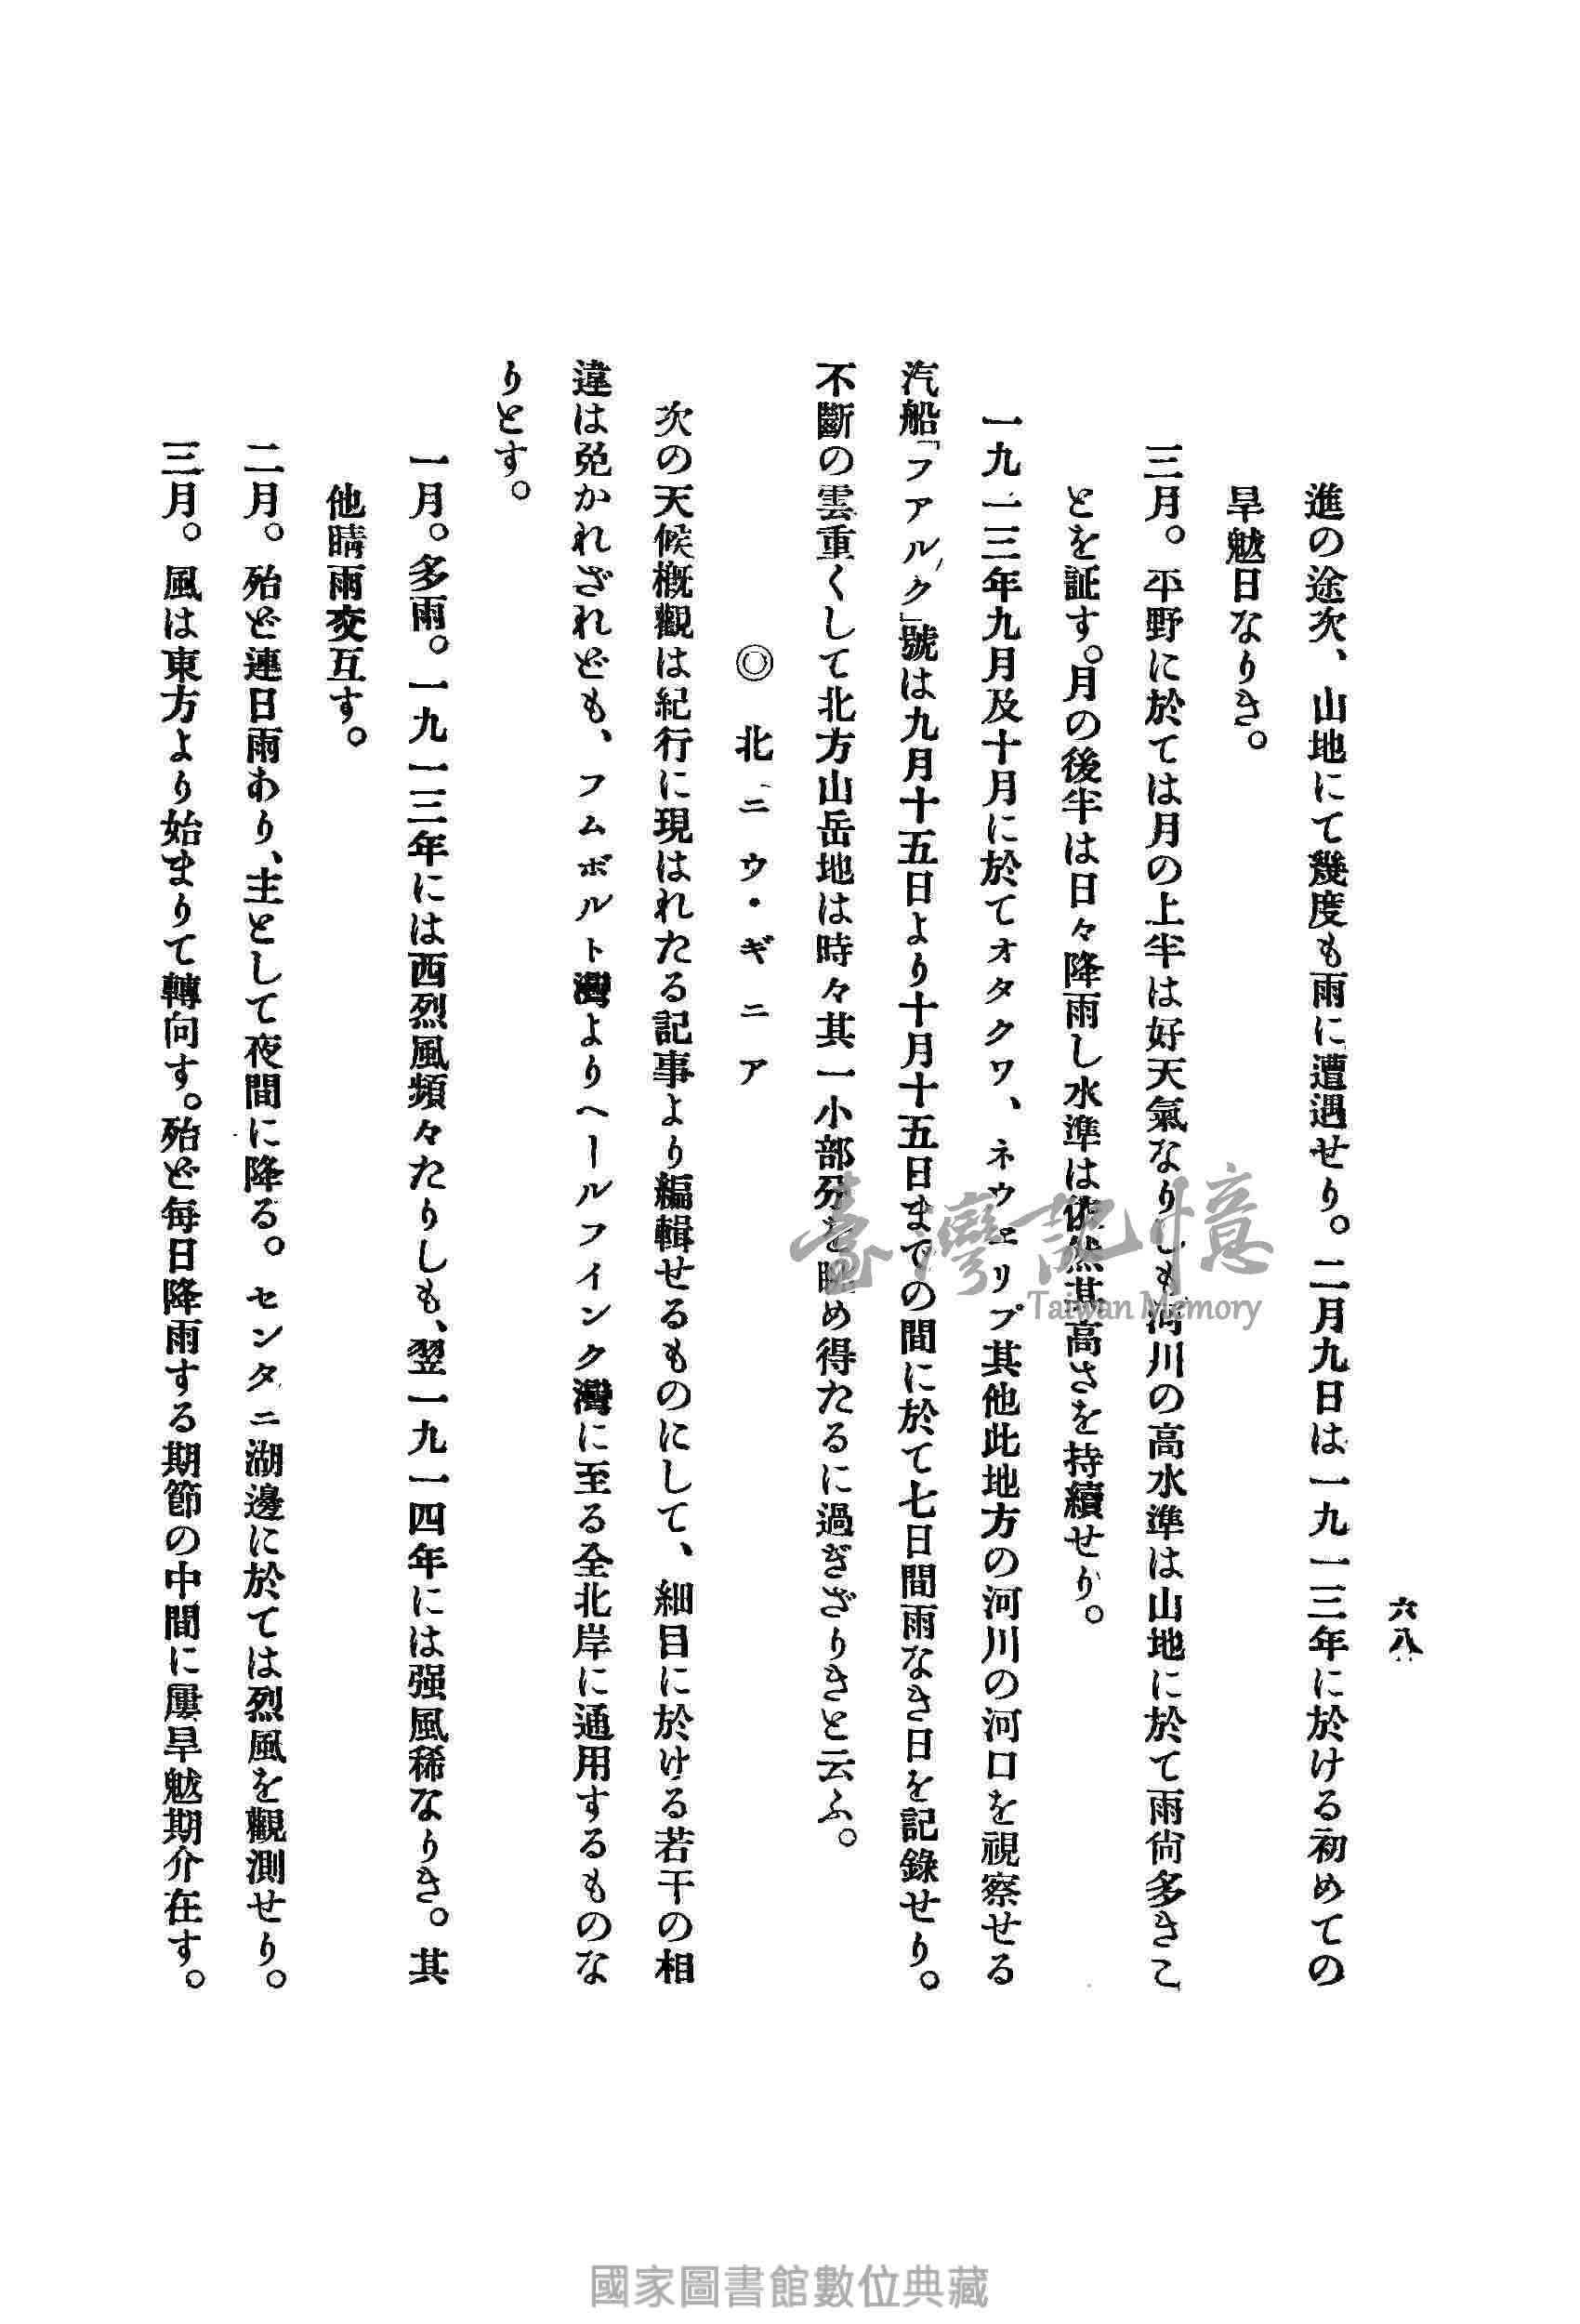 六八
進の途次、山地にて幾度も雨に遭遇せり。二月九日は一九一三年に於ける初めての
旱魃日なりき。
三月。平野に於ては月の上半は好天氣なりしも河川の高水準は山地に於て雨尙多きこ
とを証す。月の後半は日々降雨し水準は依然其高さを持續せり。
一九一三年九月及十月に於てオタクワ、ネウェリプ其他此地方の河川の河口を視察せる
汽船「フアルク」號は九月十五日より十月十五日までの間に於て七日間雨なき日を記錄せり。
不斷の雲重くして北方山岳地は時々其一小部分を眺め得たるに過ぎざりきと云ふ。
◎北ニウ・ギニア
次の天候槪觀は紀行に現はれたる記事より編輯せるものにして、細目に於ける若干の相
違は免かれざれども、フムボルト灣よりヘールフインク灣に至る全北岸に通用するものな
りとす。
一月。多雨。一九一三年には西烈風頻々たりしも、翌一九一四年には强風稀なりき。其
他晴雨交互す。
二月。殆ど連日雨あり、主として夜間に降る。センタニ湖邊に於ては烈風を觀測せり。
三月。風は東方より始まりて轉向す。殆ど每日降雨する期節の中間に屢旱魃期介在す。
臺灣記憶
Taiwan Memory
國家圖書館數位典藏